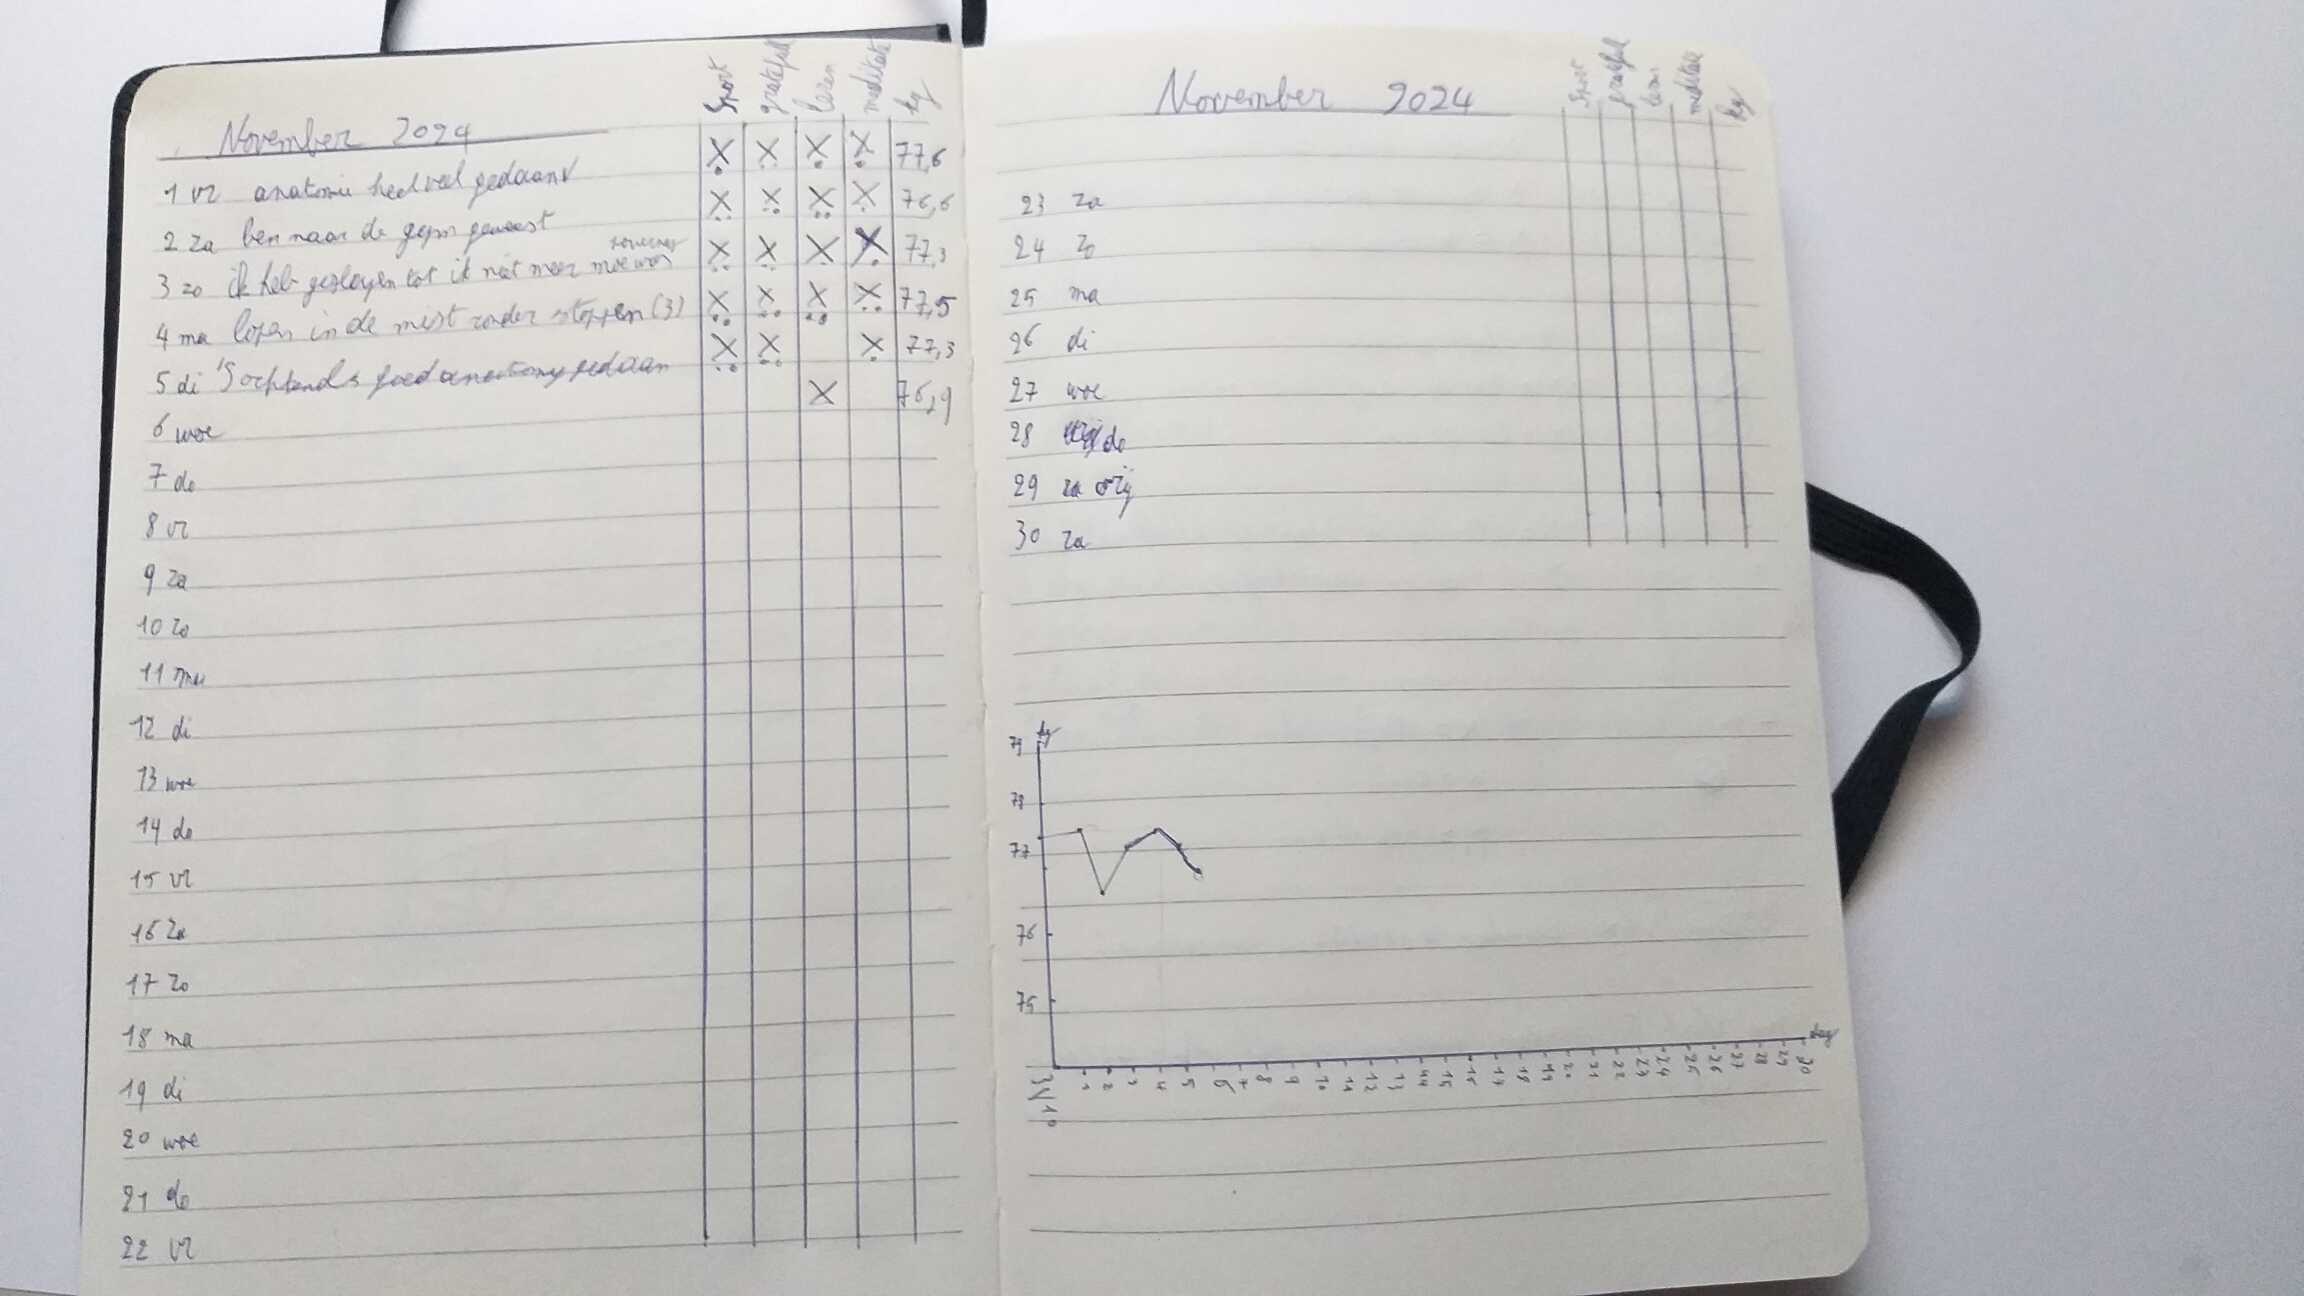 Sport grateful lezen meditate kg
November 2024
1 vr anatomie heel veel gedaan X X X X 77,6
2 za ben naar de gym geweest X X X X 76,6
3 zo ik heb geslapen tot ik niet meer moe was X X X X 77,3
4 ma lopen in de mist zonder stoppen (3) X X X X 77,5
5 di 's ochtends goed anatomy gedaan X X X 77,3
6 woe X 76,9
7 do
8 vr
9 za
10 zo
11 ma
12 di
13 woe
14 do
15 vr
16 za
17 zo
18 ma
19 di
20 woe
21 do
22 vr
November 2024
Sport grateful lezen meditate kg
23 za
24 zo
25 ma
26 di
27 woe
28 do
29 za vrij
30 za
kg
79
78
77
76
75
day
31/10 1 2 3 4 5 6 7 8 9 10 11 12 13 14 15 16 17 18 19 20 21 22 23 24 25 26 27 28 29 30